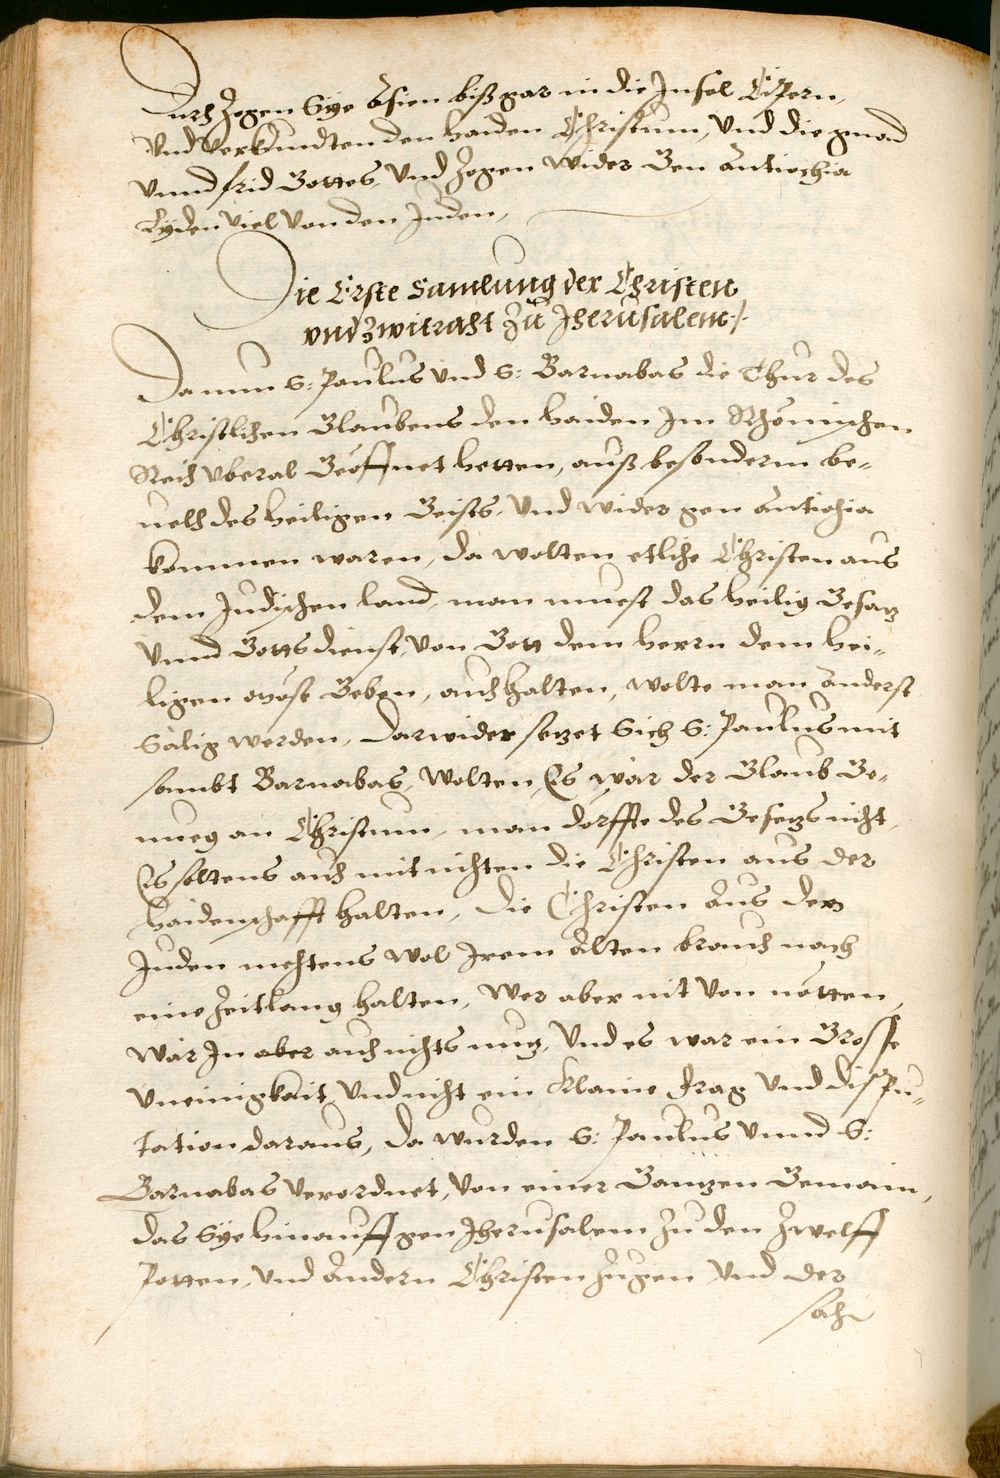 Durch Zogen Sÿe Asien biß gar in die Insel Cipern,
Vnd verkündten den haiden Christum, Vnd die gnad
Vnnd frid Gottes, Vnd Zogen wider Gen Antiochia
Lÿden viel Von den Juden,
Die Erste Samlung der Christen
vnd Zwitracht Zu Jherusalem /.
Da nun S: Paulus Vnd S: Barnabas die Thür des
Christlichen Glaubens den haiden Im Rhömischen
Reich vberal Geöffnet hetten, auß besonderm be-
uelh des heiligen Geists, Vnd wider gen Antiochia
kommen waren, da wolten etliche Christen aus
dem Jüdischen land, man muest das heilig Gesatz
Vnnd Gottsdienst, Von Gott dem herrn dem hei-
ligen Moȳse Geben, auch halten, wolte man anderst
Sälig werden, Darwider setzet Sich S: Paulus mit
sambt Barnabas, Wolten, Es wär der Glaub Ge-
nueg an Christum, man dörffte des Gesetzs nicht,
Es soltens auch mit nichten die Christen aus der
haidenschafft halten, Die Christen Aus den
Juden mechtens wol Irem Alten brauch nach
eine Zeitlang halten, Wer aber nit Von nötten,
Wär In aber auch nichts nutz, Vnd es war ein Grosse
Vneinigkait, Vnd nicht ein klaine frag Vnd dispu-
tation daraus, Da wurden S: Paulus Vnnd S:
Barnabas Verordnet, Von einer Gantzen Gemain,
das Sÿe hinauff gen Jherusalem Zu den Zwelff
Potten, Vnd Andern Christen Zugen Vnd der
sach